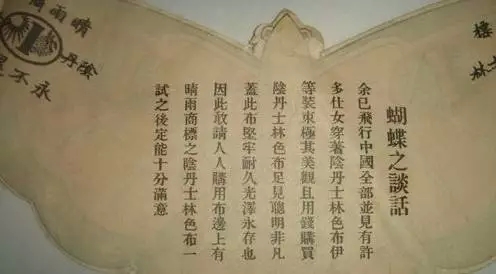 蝴蝶之談話
余已飛行中國全部並見有許
多仕女穿著陰丹士林色布伊
等裝束極其美觀且用錢購買
陰丹士林色布足見聰明非凡
蓋此布堅牢耐久光澤永存也
因此敢請人人購用布邊上有
晴雨商標之陰丹士林色布一
試之後定能十分滿意
晴雨
陰丹
永不
標
林